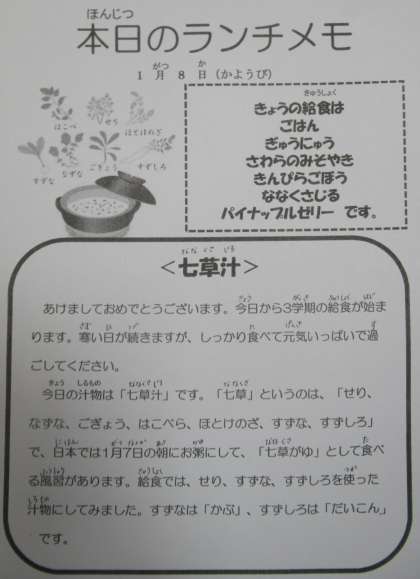 本日のランチメモ
1月8日（かようび）
はこべ
せり
ほとけのざ
すずな
なずな
ごぎょう
すずしろ
きょうの給食は
ごはん
ぎゅうにゅう
さわらのみそやき
きんぴらごぼう
ななくさじる
パイナップルゼリー です。
＜七草汁＞
あけましておめでとうございます。今日から3学期の給食が始ま
ります。寒い日が続きますが、しっかり食べて元気いっぱいで過
ごしてください。
今日の汁物は「七草汁」です。「七草」というのは、「せり、
なずな、ごぎょう、はこべら、ほとけのざ、すずな、すずしろ」
で、日本では1月7日の朝にお粥にして、「七草がゆ」として食べ
る風習があります。給食では、せり、すずな、すずしろを使った
汁物にしてみました。すずなは「かぶ」、すずしろは「だいこん」
です。